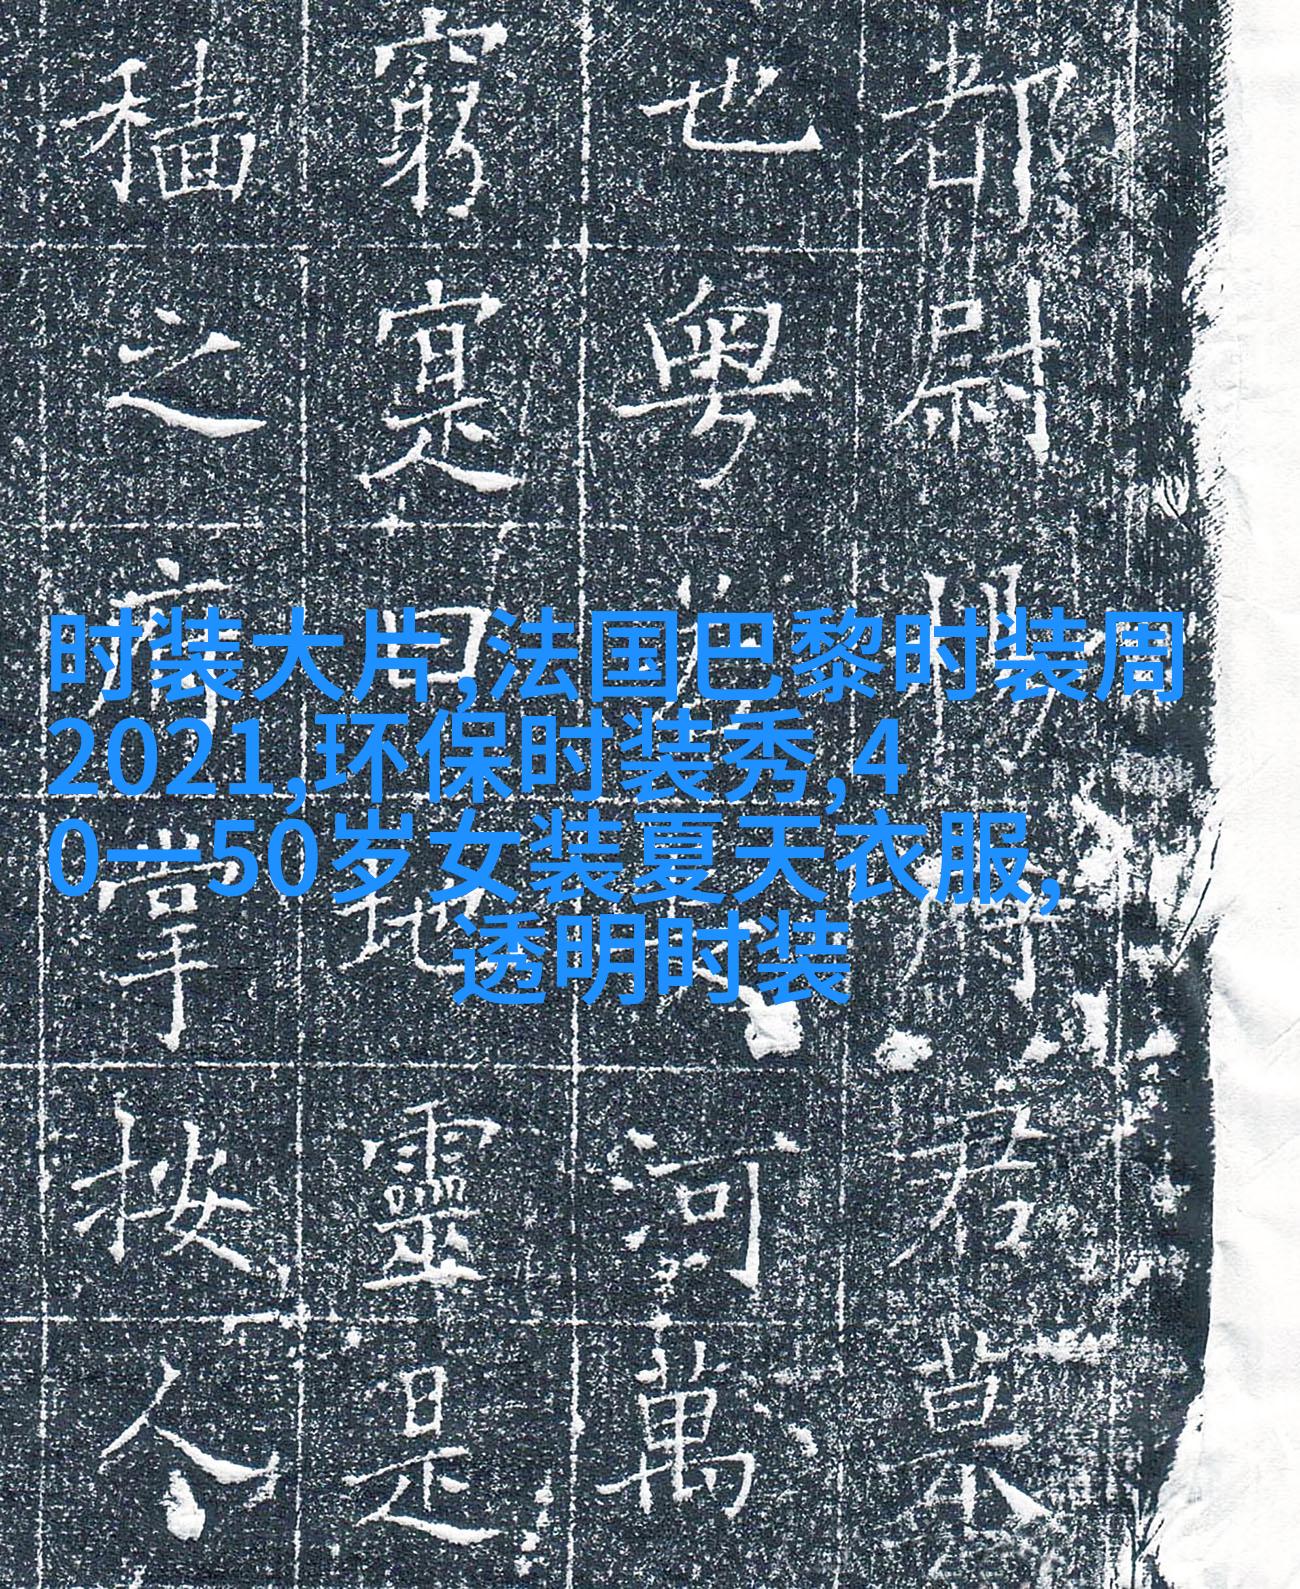 时装大片,法国巴黎时装周
2021,环保时装秀,4
0一50岁女装夏天衣服,
透明时装
都尉君
也粤河萬
窮寔曰地靈是
穡之掌按人